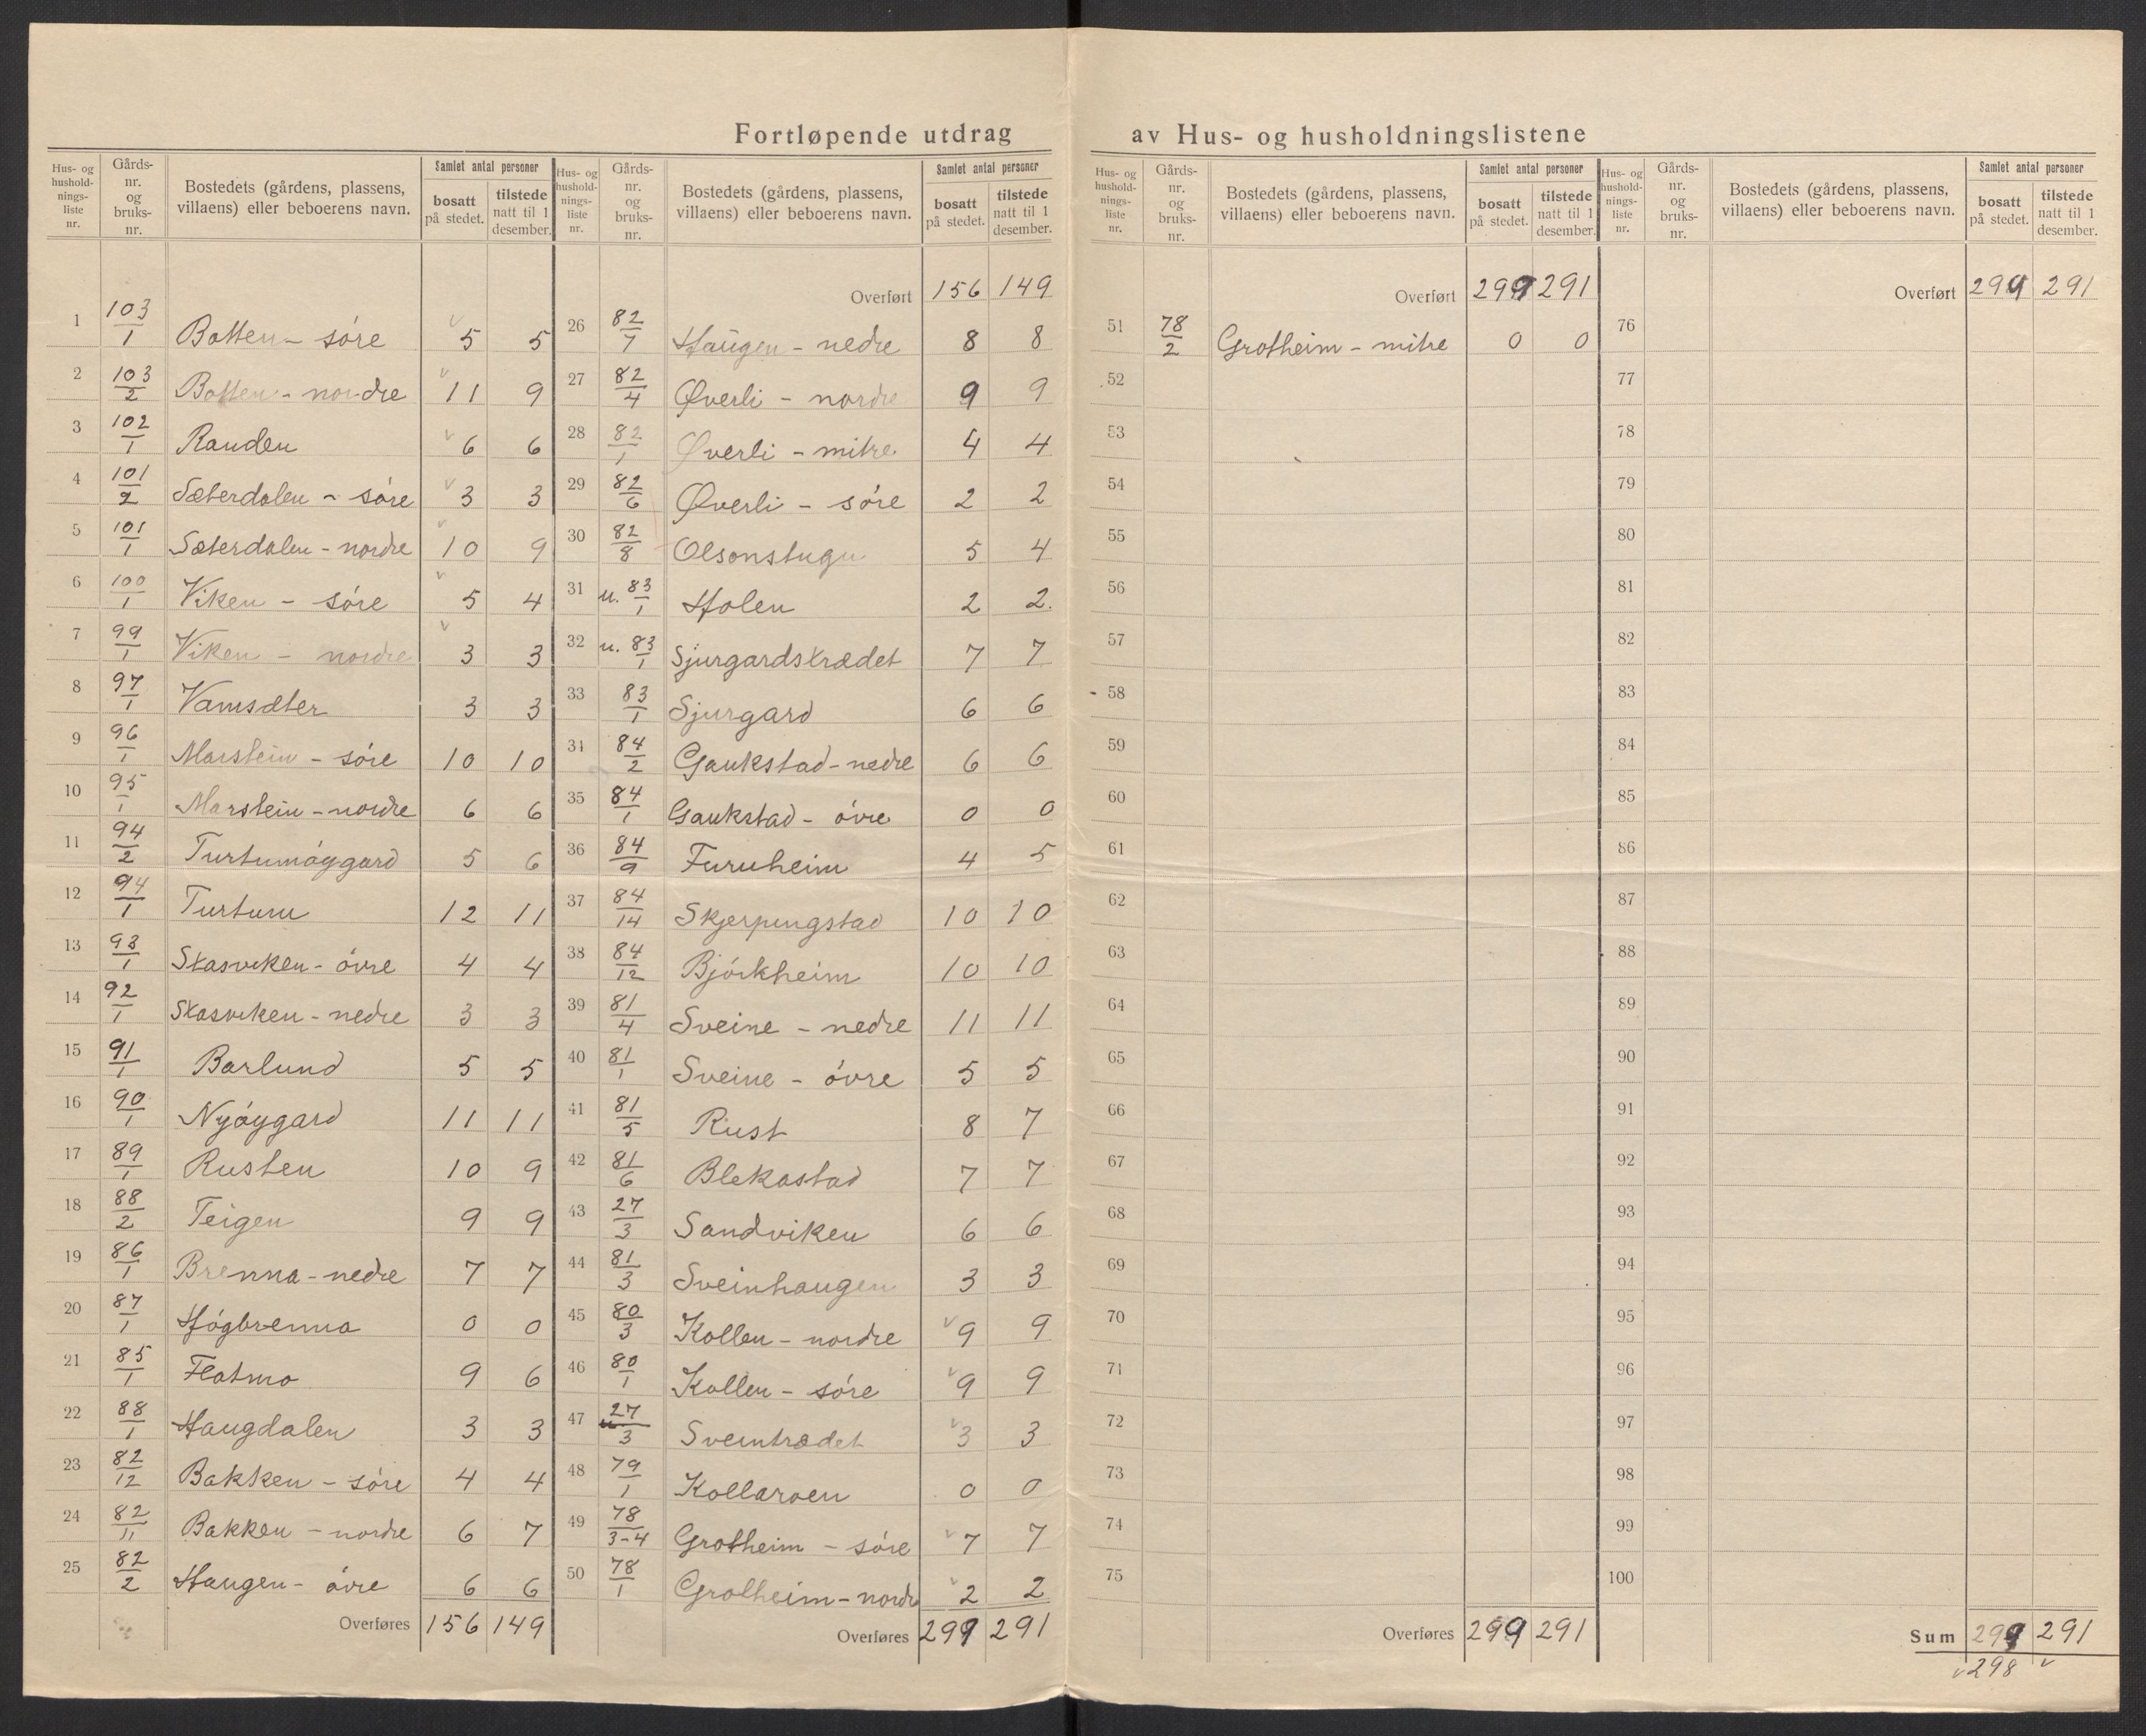 Fortløpende utdrag av Hus- og husholdningslistene
Hus- og hushold-nings-liste nr. Gårds-nr. og bruks-nr. Bostedets (gårdens, plassens, villaens) eller beboerens navn. Samlet antal personer bosatt på stedet. tilstede natt til 1 desember.
1 103/1 Botten - søre 5 5
2 103/2 Botten - nordre 11 9
3 102/1 Randen 6 6
4 101/2 Sæterdalen - søre 3 3
5 101/1 Sæterdalen - nordre 10 9
6 100/1 Viken - søre 5 4
7 99/1 Viken - nordre 3 3
8 97/1 Vamsæter 3 3
9 96/1 Marstein - søre 10 10
10 95/1 Marstein - nordre 6 6
11 94/2 Turtumøygard 5 6
12 94/1 Turtum 12 11
13 93/1 Stasviken - øvre 4 4
14 92/1 Stasviken - nedre 3 3
15 91/1 Barlund 5 5
16 90/1 Nyøygard 11 11
17 89/1 Rusten 10 9
18 88/2 Teigen 9 9
19 86/1 Brenna - nedre 7 7
20 87/1 Høgbrenna 0 0
21 85/1 Flatmo 9 6
22 88/1 Haugdalen 3 3
23 82/12 Bakken - søre 4 4
24 82/11 Bakken - nordre 6 7
25 82/2 Haugen - øvre 6 6
Overføres 156 149
Hus- og hushold-nings-liste nr. Gårds-nr. og bruks-nr. Bostedets (gårdens, plassens, villaens) eller beboerens navn. Samlet antal personer bosatt på stedet. tilstede natt til 1 desember.
Overført 156 149
26 82/7 Haugen - nedre 8 8
27 82/4 Øverli - nordre 9 9
28 82/1 Øverli - mitre 4 4
29 82/6 Øverli - søre 2 2
30 82/8 Olsonstugu 5 4
31 u. 83/1 Holen 2 2.
32 u. 83/1 Sjurgardstrædet 7 7
33 83/1 Sjurgard 6 6
34 84/2 Gaukstad - nedre 6 6
35 84/1 Gaukstad - øvre 0 0
36 84/9 Furuheim 4 5
37 84/14 Skjerpingstad 10 10
38 84/12 Bjørkheim 10 10
39 81/4 Sveine - nedre 11 11
40 81/1 Sveine - øvre 5 5
41 81/5 Rust 8 7
42 81/6 Blekastad 7 7
43 27/3 Sandviken 6 6
44 81/3 Sveinhaugen 3 3
45 80/3 Kollen - nordre 9 9
46 80/1 Kollen - søre 9 9
47 u 27/3 Sveintrædet 3 3
48 79/1 Kollaroen 0 0
49 78/3-4 Grotheim - søre 7 7
50 78/1 Grotheim - nordre 2 2
Overføres 299 291
Hus- og hushold-nings-liste nr. Gårds-nr. og bruks-nr. Bostedets (gårdens, plassens, villaens) eller beboerens navn. Samlet antal personer bosatt på stedet. tilstede natt til 1 desember.
Overført 299 291
51 78/2 Grotheim - mitre 0 0
52
53
54
55
56
57
58
59
60
61
62
63
64
65
66
67
68
69
70
71
72
73
74
75
Overføres 299 291
Hus- og hushold-nings-liste nr. Gårds-nr. og bruks-nr. Bostedets (gårdens, plassens, villaens) eller beboerens navn. Samlet antal personer bosatt på stedet. tilstede natt til 1 desember.
Overført 299 291
76
77
78
79
80
81
82
83
84
85
86
87
88
89
90
91
92
93
94
95
96
97
98
99
100
Sum 299 291
298